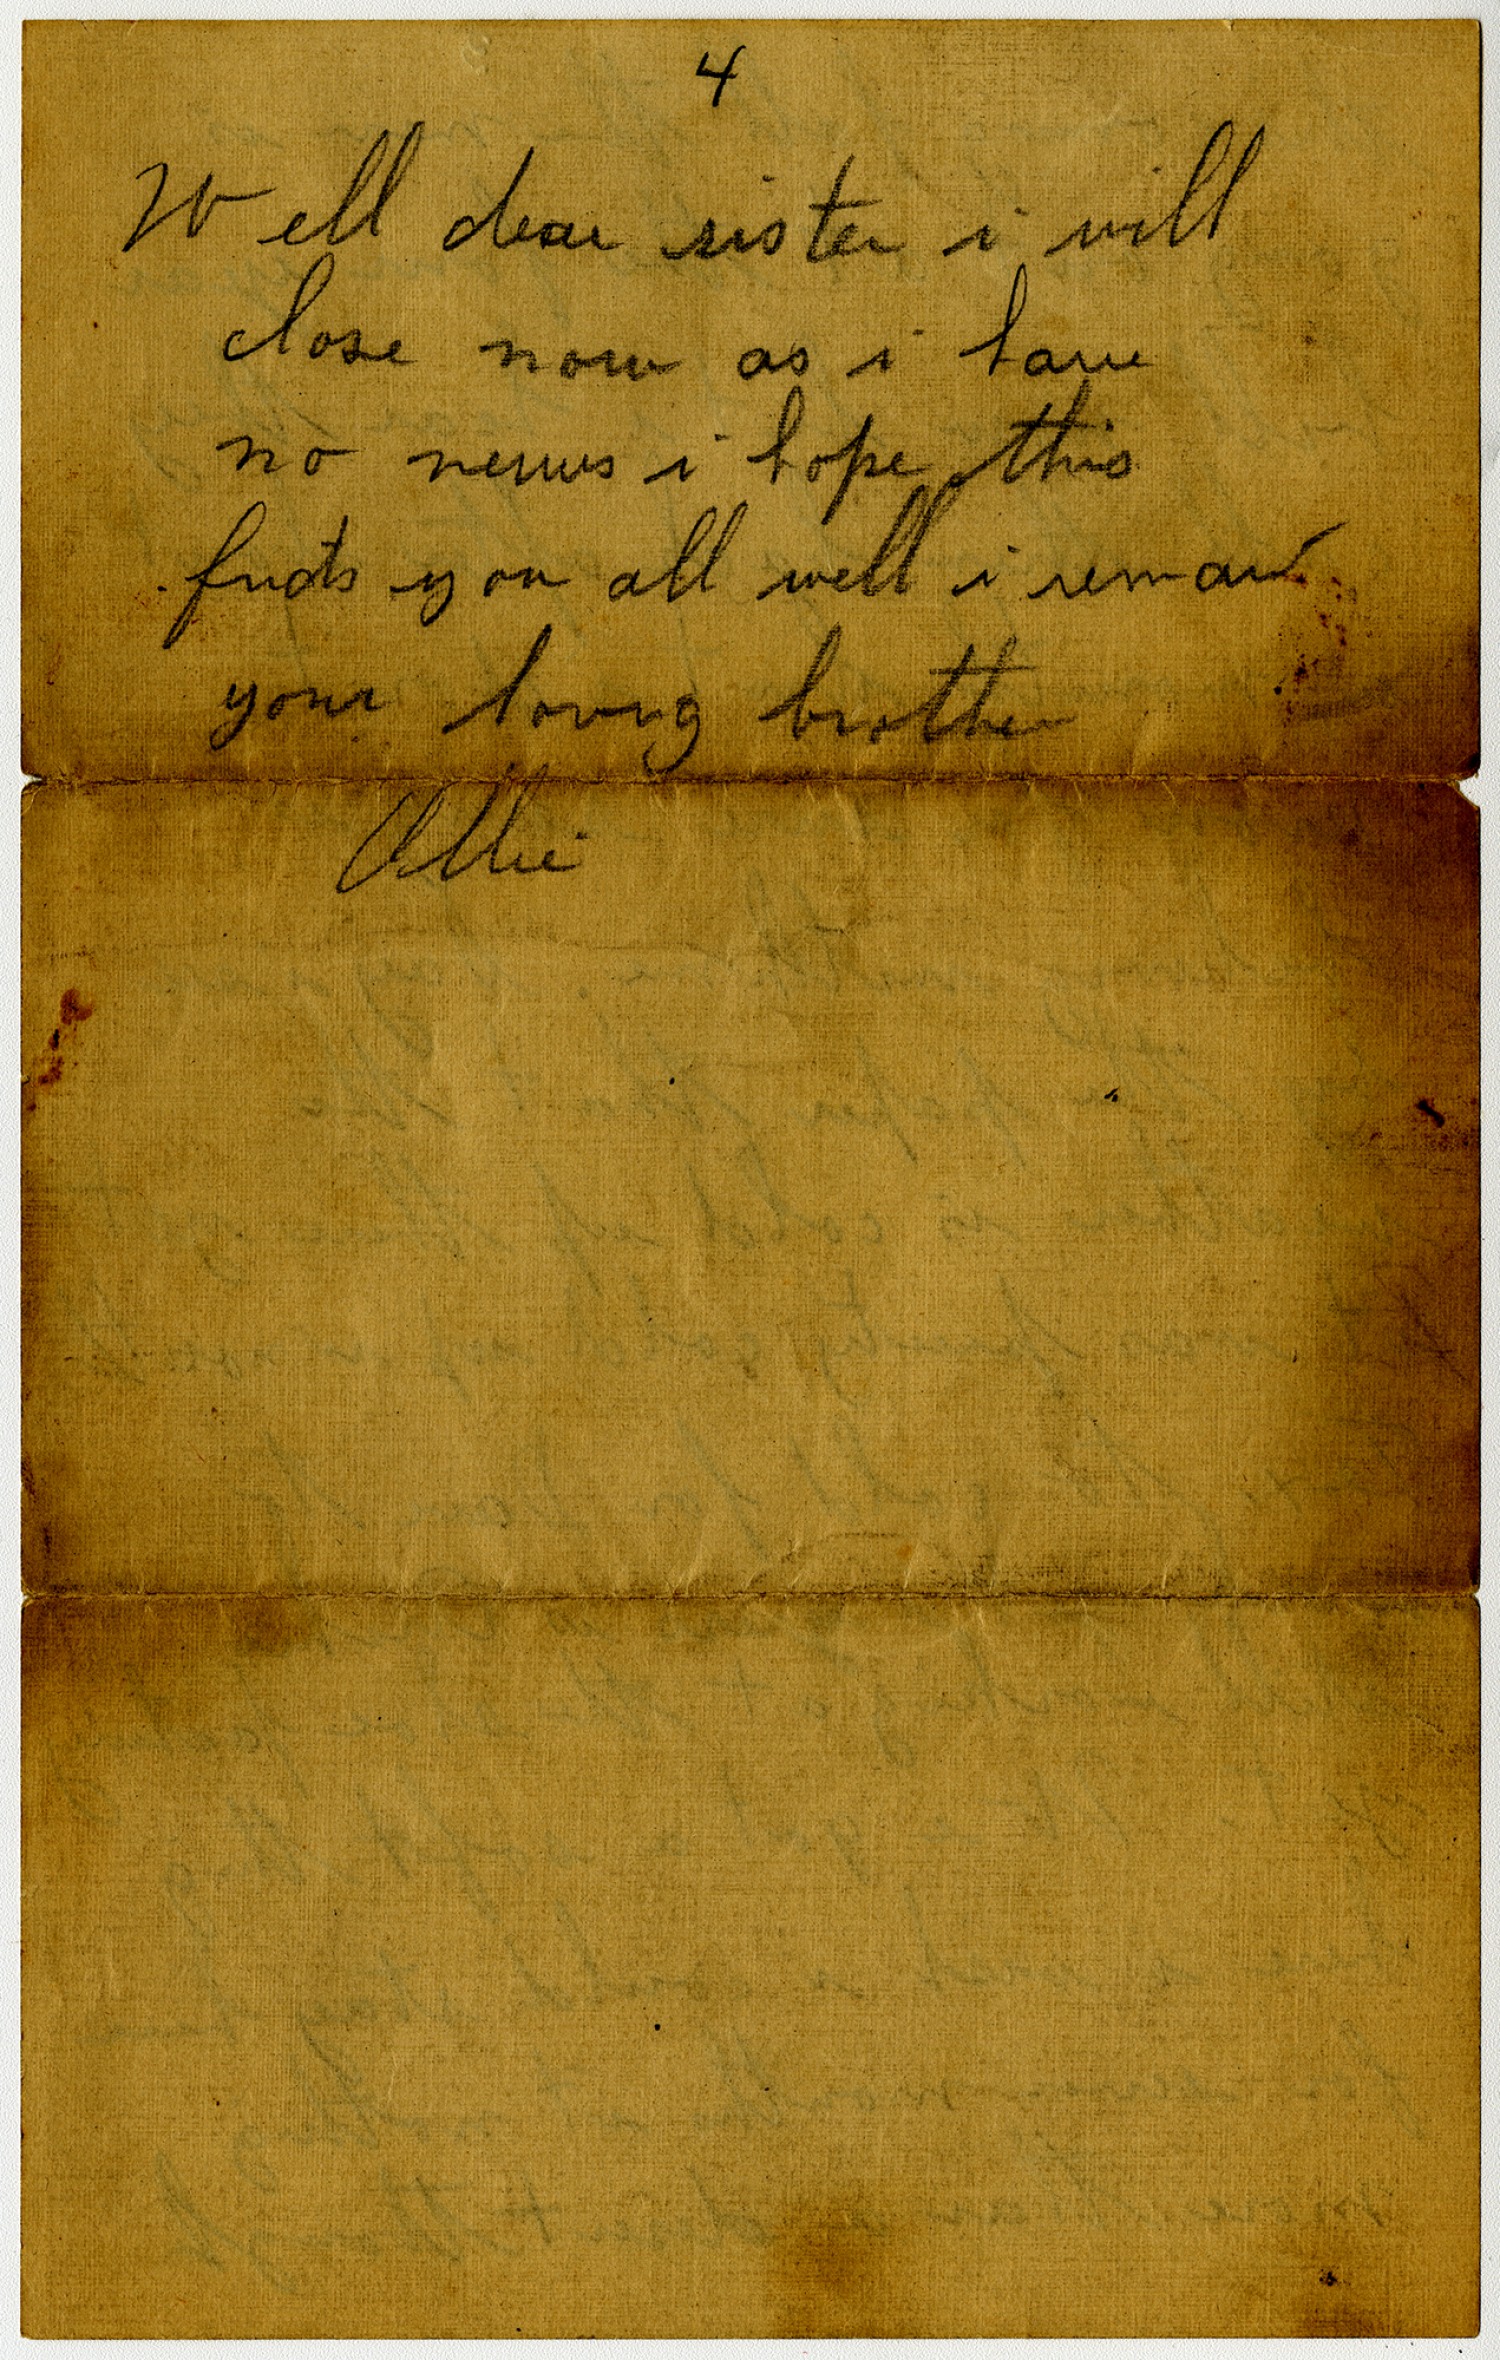 4
Well dear sister i will
close now as i have
no news i hope this
finds you all well i remain
your loving brother
Ollie